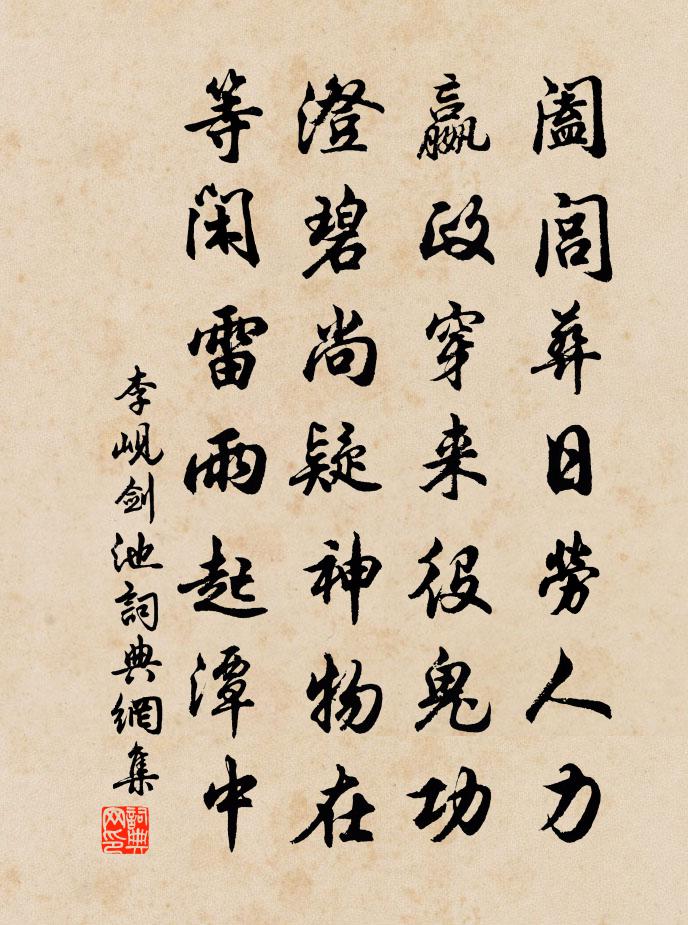 闔閭葬日勞人力
嬴政穿来役鬼功
澄碧尚疑神物在
等閑雷雨起潭中
李峴劍池詞典網集
詞典网印